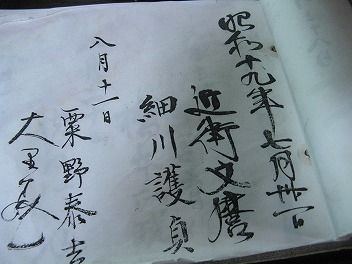 昭和十九年七月廿一日
近衛文麿
細川護貞
八月十一日
粟野泰吉